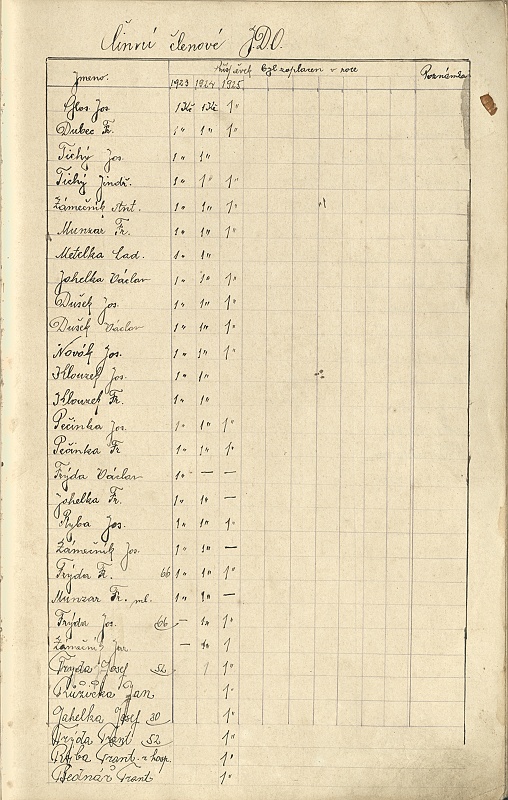 Činní členové J.D.O.
Jmeno. Příspěvek byl zaplacen v roce Poznámka
1923 1924 1925
Glos Jos 1 Kč 1 Kč 1"
Dubec Fr. 1" 1" 1"
Tichý Jos. 1" 1"
Tichý Jindř. 1" 1" 1"
Zámečník Ant. 1" 1" 1"
Munzar Fr. 1" 1" 1"
Metelka Lad. 1" 1"
Jahelka Václav 1" 1" 1"
Dušek Jos. 1" 1" 1"
Dušek Václav 1" 1" 1"
Novák Jos. 1" 1" 1"
Klouzek Jos. 1" 1"
Klouzek Fr. 1" 1"
Pečinka Jos. 1" 1" 1"
Pečinka Fr 1" 1" 1"
Frýda Václav 1" — —
Jahelka Fr. 1" 1" —
Ryba Jos. 1" 1" 1"
Zámečník Jos. 1" 1" —
Frýda F. 66 1" 1" 1"
Munzar Fr. ml. 1" 1" —
Frýda Jos. 66 — 1" 1"
Zámečník Jar. — 1" 1
Fryda Josef 52 1 1"
Růžička Jan 1"
Jahelka Josef 30 1"
Frýda Frant 52 1"
Ryba Frant. z hosp. 1"
Bednář Frant 1"